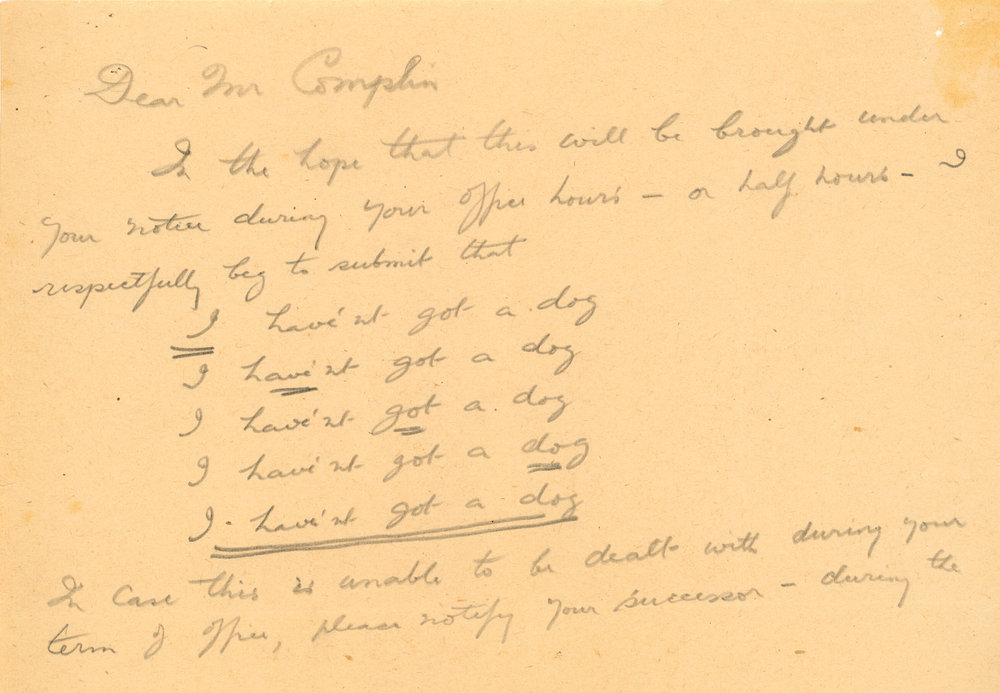 Dear Mr Complin
In the hope that this will be brought under
your notice during your office hours - or half hours - I
respectfully beg to submit that
I have'nt got a dog
I have'nt got a dog
I have'nt got a dog
I have'nt got a dog
I have'nt got a dog
In case this is unable to be dealt with during your
term of office, please notify your successor - during the